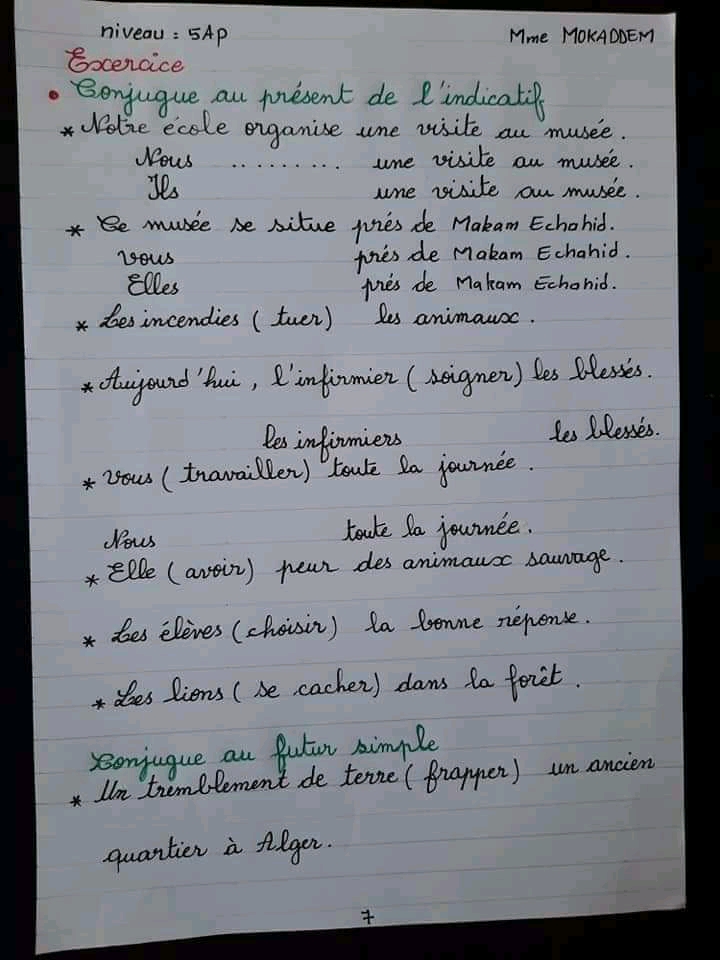 niveau : 5Ap Mme MOKADDEM
Exercice
• Conjugue au présent de l'indicatif
* Notre école organise une visite au musée.
Nous ......... une visite au musée.
Ils une visite au musée.
* Ce musée se situe prés de Makam Echahid.
vous prés de Makam Echahid.
Elles prés de Makam Echahid.
* Les incendies ( tuer) les animaux.
* Aujourd'hui, l'infirmier ( soigner) les blessés.
les infirmiers les blessés.
* Vous ( travailler) toute la journée.
Nous toute la journée.
* Elle ( avoir) peur des animaux sauvage.
* Les élèves (choisir) la bonne réponse.
* Les lions ( se cacher) dans la forêt.
Conjugue au futur simple
* Un tremblement de terre ( frapper) un ancien
quartier à Alger.
7